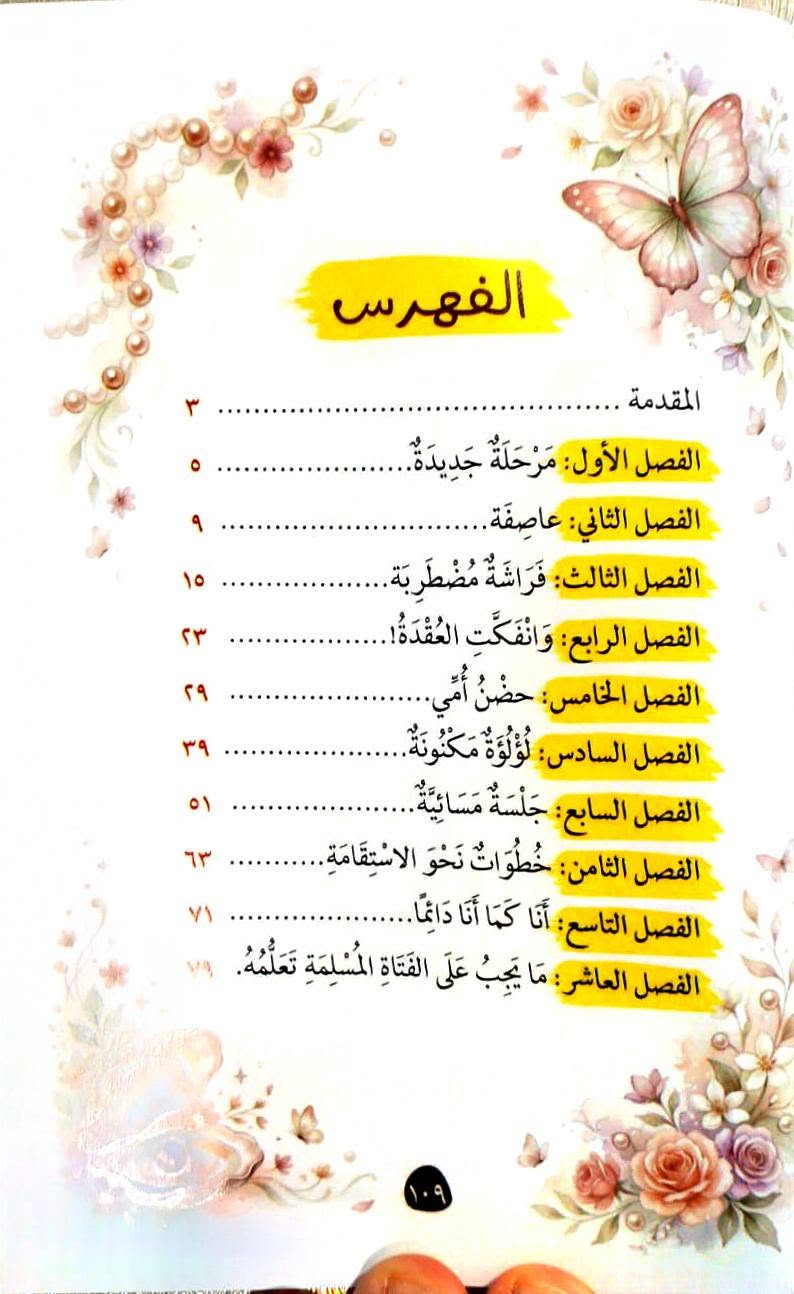 الفهرس
المقدمة ............................................ ٣
الفصل الأول: مَرْحَلَةٌ جَدِيدَةٌ...................... ٥
الفصل الثاني: عاصِفَة............................. ٩
الفصل الثالث: فَرَاشَةٌ مُضْطَرِبَة................... ١٥
الفصل الرابع: وَانْفَكَّتِ العُقْدَةُ!.................. ٢٣
الفصل الخامس: حضْنُ أُمِّي...................... ٢٩
الفصل السادس: لُؤْلُؤَةٌ مَكْنُونَةٌ.................... ٣٩
الفصل السابع: جَلْسَةٌ مَسَائِيَّةٌ.................... ٥١
الفصل الثامن: خُطُوَاتٌ نَحْوَ الاسْتِقَامَةِ........... ٦٣
الفصل التاسع: أَنَا كَمَا أَنَا دَائِمًا.................... ٧١
الفصل العاشر: مَا يَجِبُ عَلَى الفَتَاةِ المُسْلِمَةِ تَعَلُّمُهُ. ٧٩
١٠٩